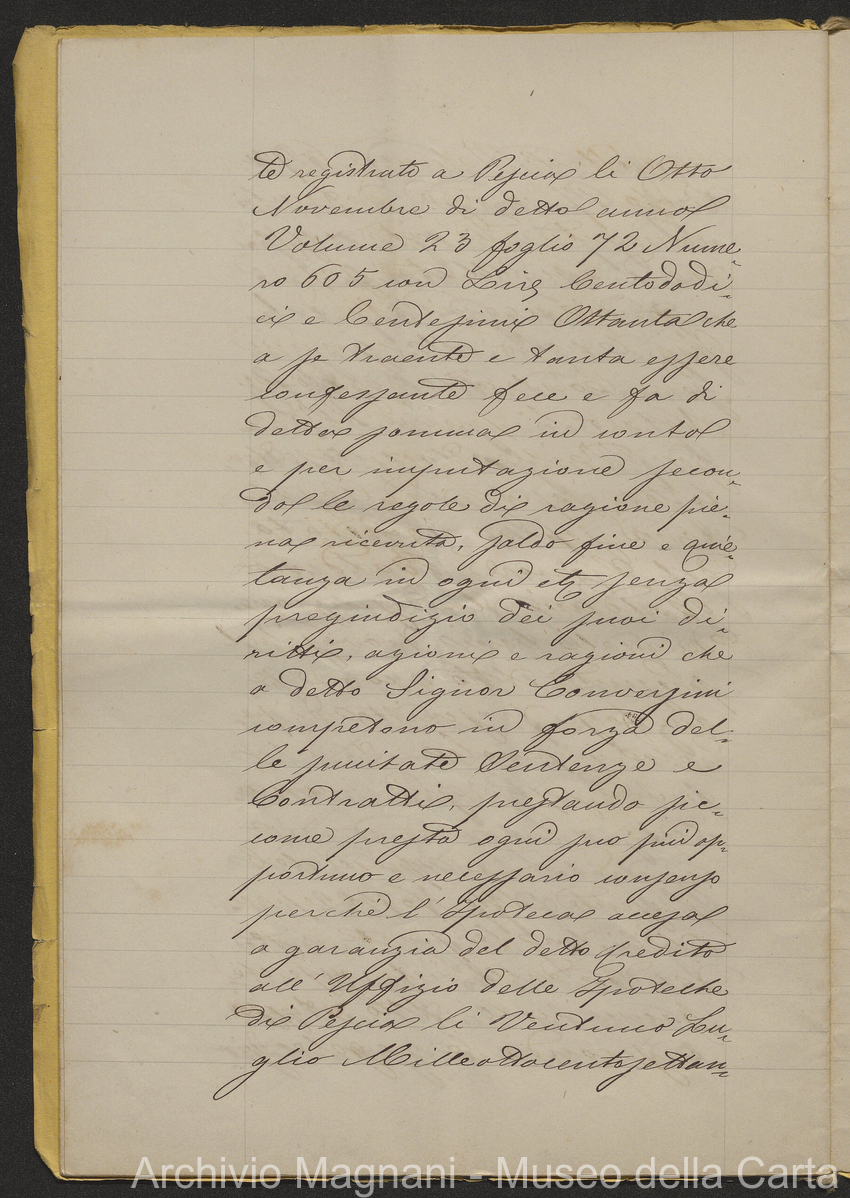 te registrato a Pescia li Otto
Novembre di detto anno
Volume 23 foglio 72 Nume-
ro 605 con Lire Centododi-
ci e Centesimi Ottanta che
a se traente e tanta essere
confessante fece e fa di
detta somma in conto
e per imputazione secon-
do le regole di ragione pie-
na ricevuta, saldo fine e quie-
tanza in ogni etc senza
pregiudizio dei suoi di-
ritti, azioni e ragioni che
a detto Signor Conversini
competono in forza del-
le succitate Sentenze e
Contratti, prestando sic-
come presta ogni suo più op-
portuno e necessario consenso
perché l'Ipoteca accesa
a garanzia del detto credito
all'Uffizio delle Ipoteche
di Pescia li Ventuno Lu-
glio Milleottocentosettan-
Archivio Magnani - Museo della Carta